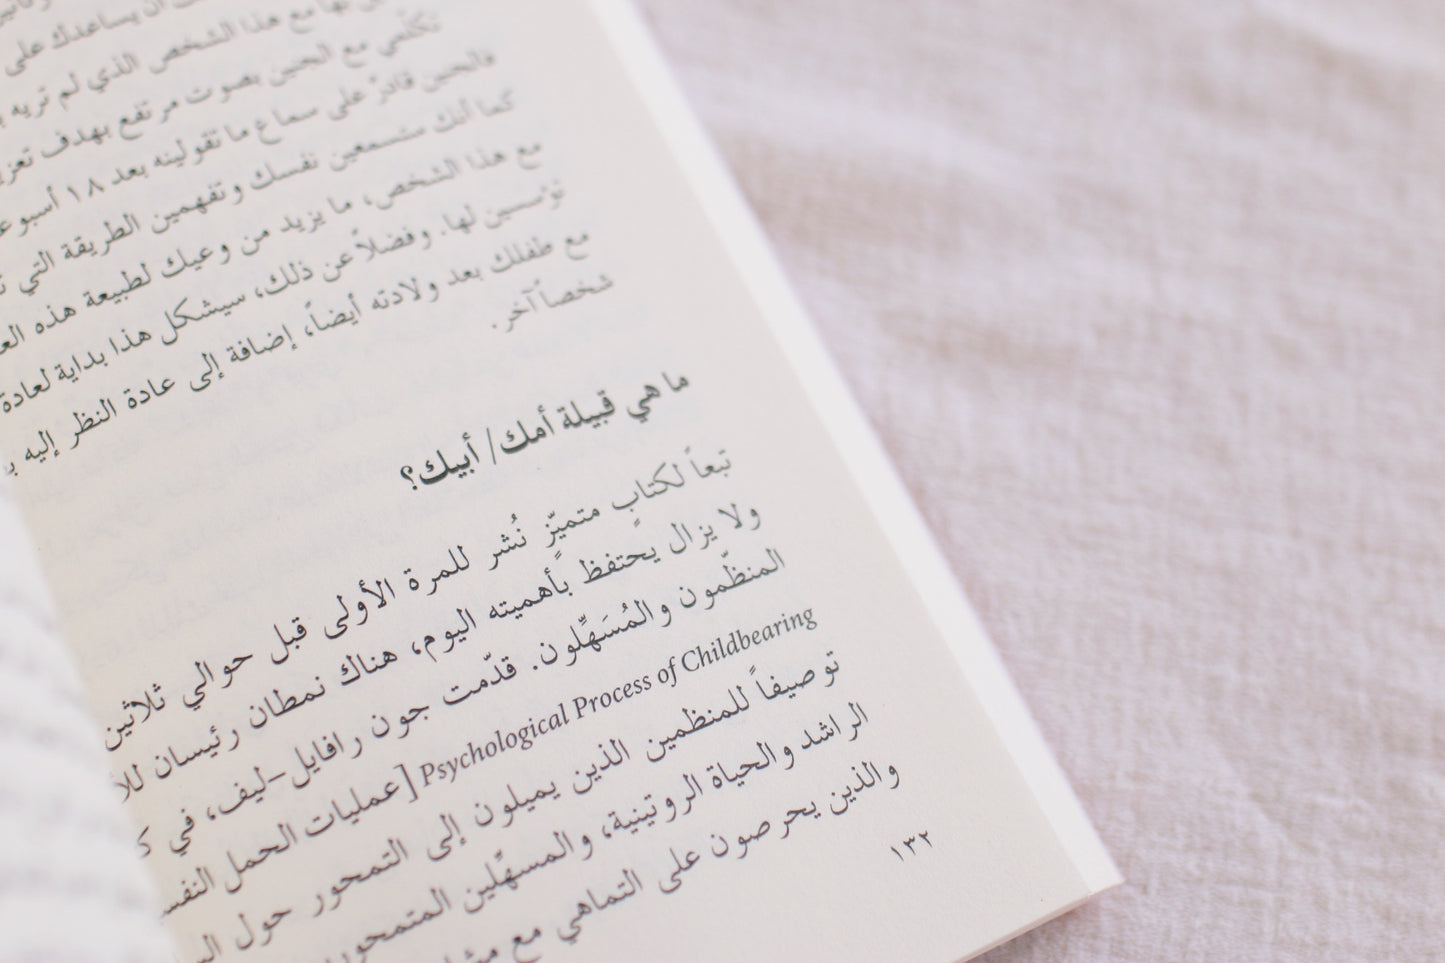 أن يساعدك على
مع هذا الشخص الذي لم تريه
تكلّمي مع الجنين بصوت مرتفع بهدف
فالجنين قادرٌ على سماع ما تقولينه بعد ١٨
كما أنك ستسمعين نفسك وتفهمين الطريقة التي
مع هذا الشخص، ما يزيد من وعيك لطبيعة هذه
تؤسسين لها. وفضلاً عن ذلك، سيشكل هذا بداية لعادة
مع طفلك بعد ولادته أيضاً، إضافة إلى عادة النظر إليه
شخصاً آخر.
ما هي قبيلة أمك/ أبيك؟
تبعاً لكتابٍ متميّزٍ نُشر للمرة الأولى قبل حوالي ثلاثين
ولا يزال يحتفظ بأهميته اليوم، هناك نمطان رئيسان
المنظّمون والمُسَهِّلون. قدّمت جون رافايل-ليف، في
Psychological Process of Childbearing [عمليات الحمل
توصيفاً للمنظمين الذين يميلون إلى التمحور حول
الراشد والحياة الروتينية، والمسهِّلين
والذين يحرصون على التماهي مع
١٣٢